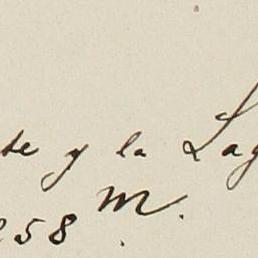 y la Lag
258 M.